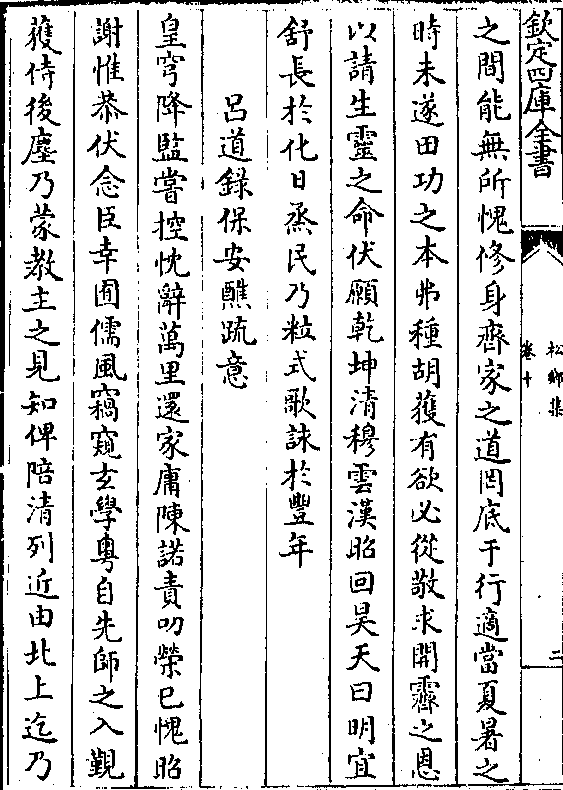 欽定四庫全書
松鄉集
卷十
二
之間能無所愧修身齊家之道罔底于行適當夏暑之
時未遂田功之本弗種胡獲有欲必從敬求開霽之恩
以請生靈之命伏願乾坤清穆雲漢昭回昊天曰明宜
舒長於化日烝民乃粒式歌詠於豐年
呂道錄保安醮疏意
皇穹降監嘗控忱辭萬里還家庸陳諾責叨榮已愧昭
謝惟恭伏念臣幸囿儒風竊窺玄學粵自先師之入覲
獲侍後塵乃蒙教主之見知俾陪清列近由北上迄乃